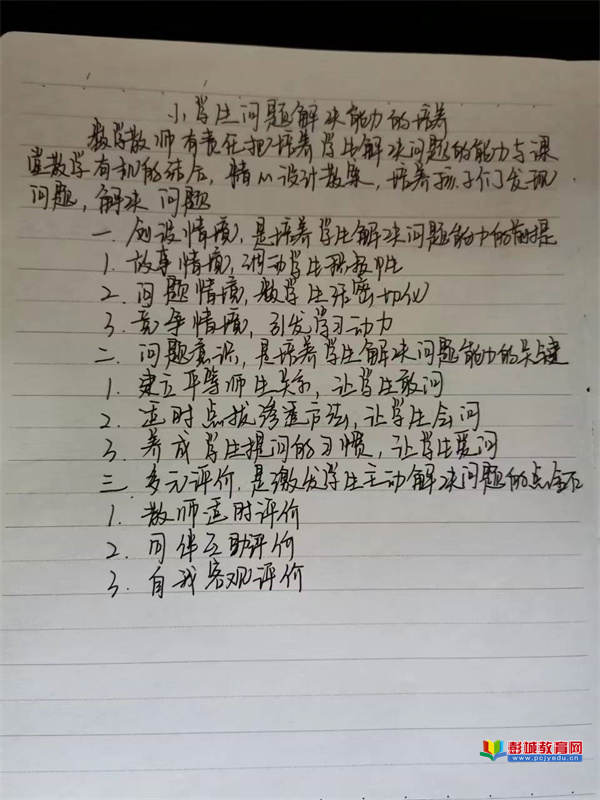 小学生问题解决能力的培养
数学教师有责任把培养学生解决问题的能力与课
堂教学有机的结合，精心设计教案，培养孩子们发现
问题，解决问题
一．创设情境，是培养学生解决问题能力的前提
1．故事情境，调动学生积极性
2．问题情境，数学生活密切化
3．竞争情境，引发学习动力
二．问题意识，是培养学生解决问题能力的关键
1．建立平等师生关系，让学生敢问
2．适时点拨渗透方法，让学生会问
3．养成学生提问的习惯，让学生爱问
三．多元评价，是激发学生主动解决问题的点金石
1．教师适时评价
2．同伴互助评价
3．自我客观评价
彭城教育网
www.pcjyedu.cn